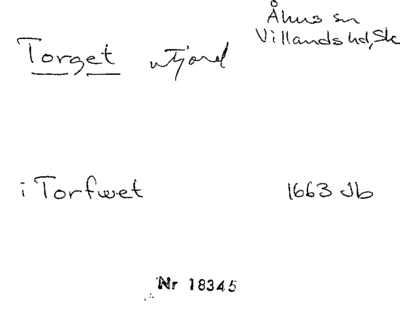 Torget
Åhus sn
Villands hd, Sk
i Torfwet 1663 Jb
Nr 18345